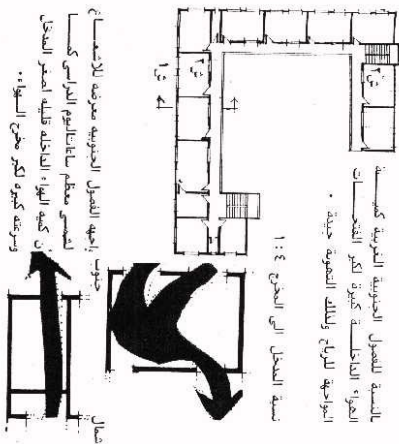 بالنسبة للفصول الجنوبية الغربية كميـــة
الهواء الداخلـــة كبيرة لكبر الفتحـــات
المواجهة للرياح ولذلك التهوية جيدة .
نسبة المدخل الى المخرج ١:٤
جنوب
شمال
واجهه الفصول الجنوبيه معرضه للاشعـــاع
الشمسى معظم ساعات اليوم الدراسى كمـــا
ان كميه الهواء الداخله قليله لصغر المدخل
وسرعته كبيره لكبر مخرج الهواء.